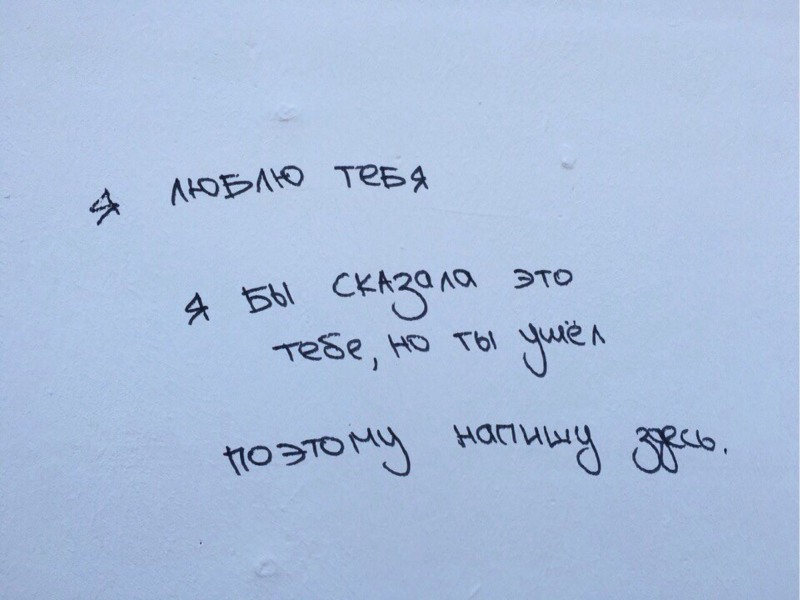 я люблю тебя
я бы сказала это
тебе, но ты ушёл
поэтому напишу здесь.